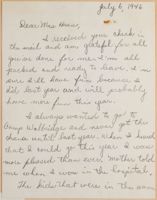 July 6, 1946
Dear Mrs. 
I received your check in
the mail and am grateful for all
you've done for me. I'm all
packed and ready to leave. I'm
sure I'll have fun because I
did last year and will probably
have more fun this year.
I always wanted to go to
Camp Walbridge and never got the
chance until last year. When I heard
that I would go this year I was
more pleased than ever. Mother told
me when I was in the hospital.
The kids that were in the same